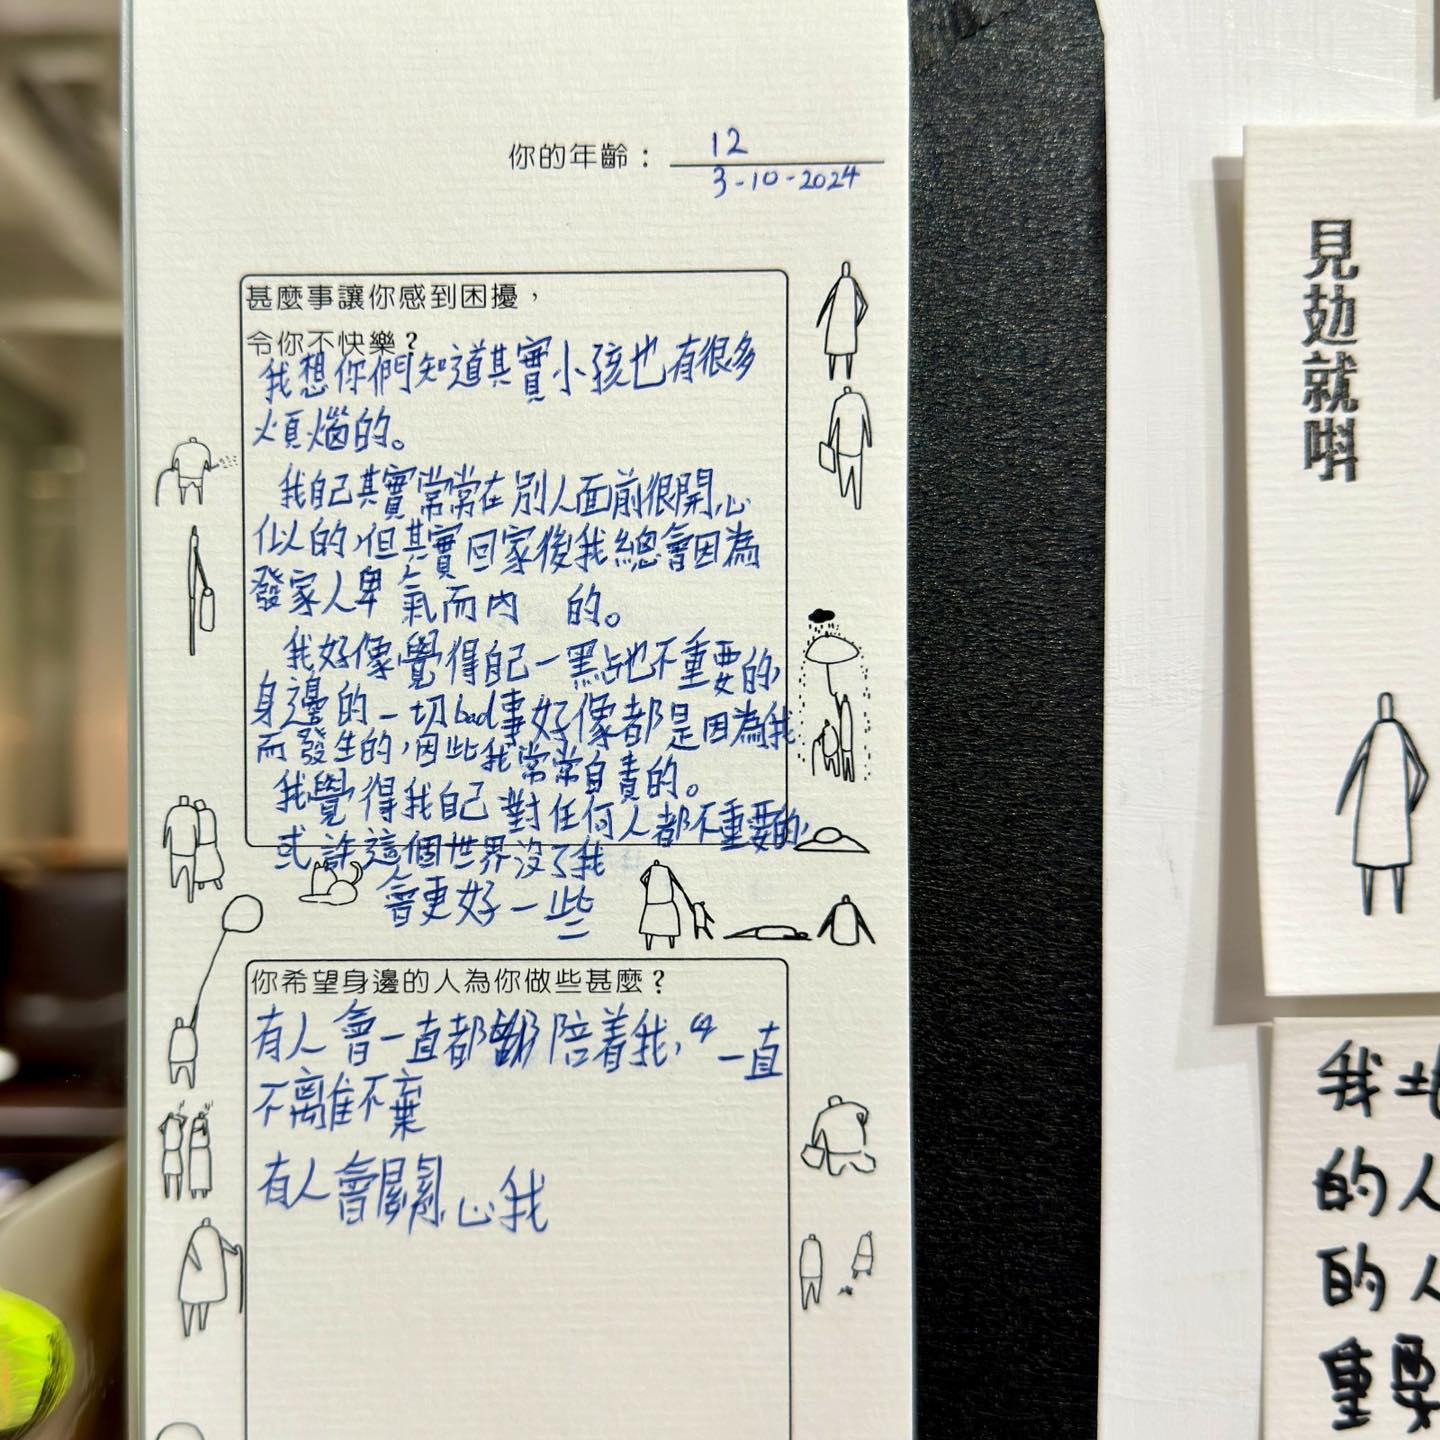 你的年齡： 12
3-10-2024
甚麼事讓你感到困擾，
令你不快樂？
我想你們知道其實小孩也有很多
煩惱的。
我自己其實常常在別人面前很開心
似的，但其實回家後我總會因為
發家人卑氣而內 的。
我好像覺得自己一點也不重要的，
身邊的一切bad事好像都是因為我
而發生的，因此我常常自責的。
我覺得我自己對任何人都不重要的，
或許這個世界沒了我
會更好一些
你希望身邊的人為你做些甚麼？
有人會一直都 陪着我，一直
不離不棄
有人會關心我
見攰就唞
我
的人
的人
重要